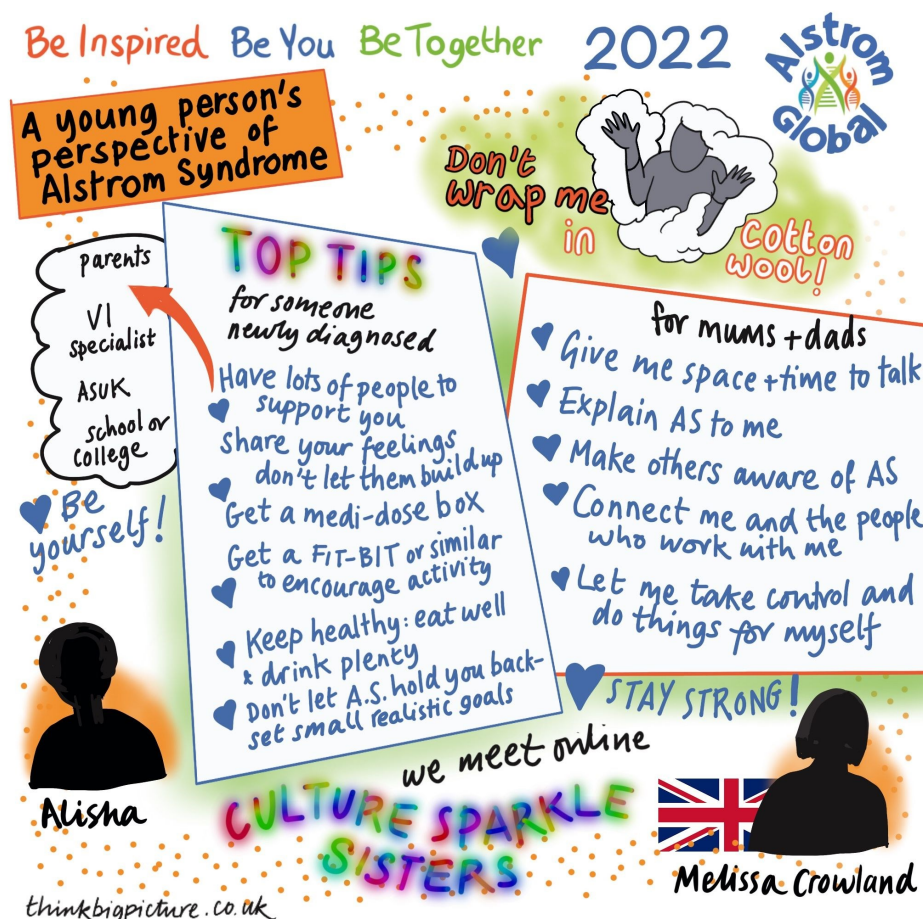 Be Inspired Be You Be Together 2022
Alstrom
Global
A young person's
perspective of
Alstrom Syndrome
Don't
wrap me
in
Cotton
wool!
parents
VI
specialist
ASUK
school or
college
Be
yourself!
TOP TIPS
for someone
newly diagnosed
Have lots of people to
support you
Share your feelings
don't let them build up
Get a medi-dose box
Get a FIT-BIT or similar
to encourage activity
Keep healthy: eat well
& drink plenty
Don't let A.S. hold you back-
set small realistic goals
for mums + dads
Give me space + time to talk
Explain AS to me
Make others aware of AS
Connect me and the people
who work with me
Let me take control and
do things for myself
STAY STRONG!
we meet online
CULTURE SPARKLE
SISTERS
Alisha
Melissa Crowland
thinkbigpicture.co.uk